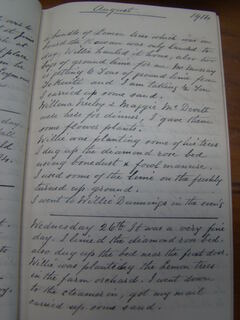 August
1914
a bundle of Lemon trees which was on
board the steamer was only landed to
day. Willie hauled it home, also two
bags of ground lime for me. Mr
is getting 2 tons of ground lime from
Te Kuiti and I am taking
I carried up some sand.
Willena & Maggie Mc
were here for dinner, I gave them
some flower plants.
Willie was planting some of his trees
I dug up the diamond rose bed
using bonedust & fowl manure.
I used some of the lime on the freshly
turned up ground.
I went to Willie Dunnings in the even'g
Wednesday 26th It was a very fine
day. I limed the diamond rose bed.
also dug up the bed near the front door.
Willie planted the Lemon trees
in the farm orchard. I went down
to the steamer in, got my mail
carried up some sand.